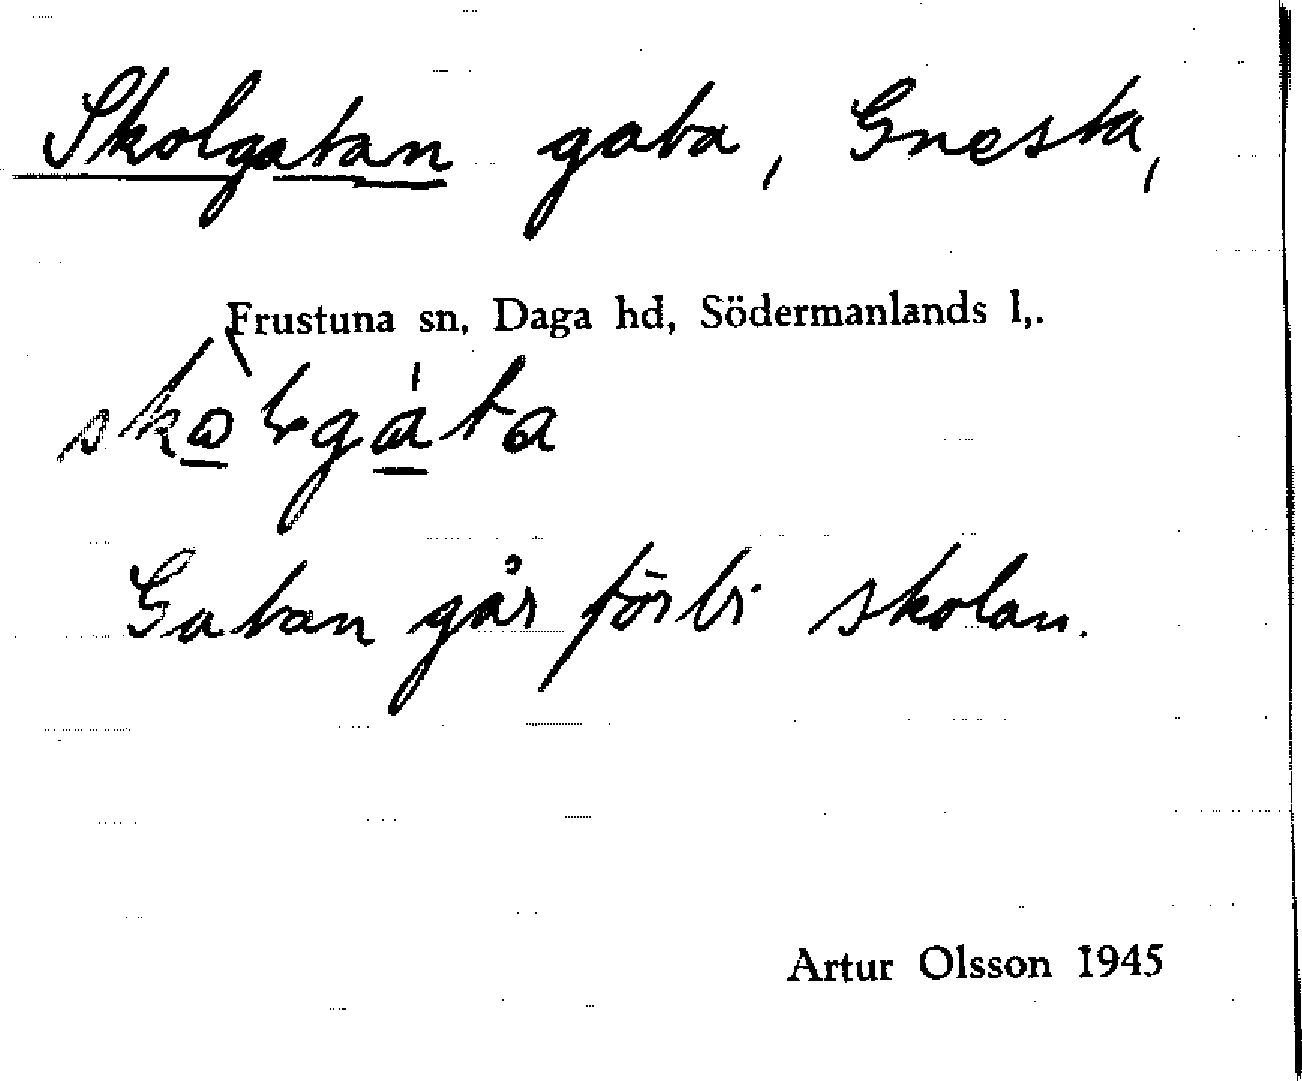 Skolgatan gata, Gnesta,
Frustuna sn, Daga hd, Södermanlands l,.
Gatan går förbi skolan.
Artur Olsson 1945